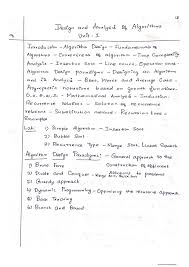 Design and Analysis of Algorithms
Unit - I
Introduction - Algorithm Design - Fundamentals of
Algorithms - Correctness of Algorithm - Time Complexity
Analysis - Insertion Sort - Line count, Operation count -
Algorithm Design paradigms - Designing an Algorithm
and its Analysis - Best, Worst and Average case -
Asymptotic Notations Based on growth functions.
Mathematical Analysis - Induction -
Recurrence Relations - Solution of recurrence
relations - Substitution method - Recursion Tree
Lab: 1) Simple Algorithm - Insertion Sort
2) Bubble Sort
3) Recurrence Type - Merge Sort, Linear Search
Algorithm Design Paradigms:- General approach to the
1) Brute Force Construction of efficient
2) Divide and Conquer solutions to problems
3) Greedy approach
4) Dynamic Programming - Optimizing the
5) Back Tracking
6) Branch and Bound